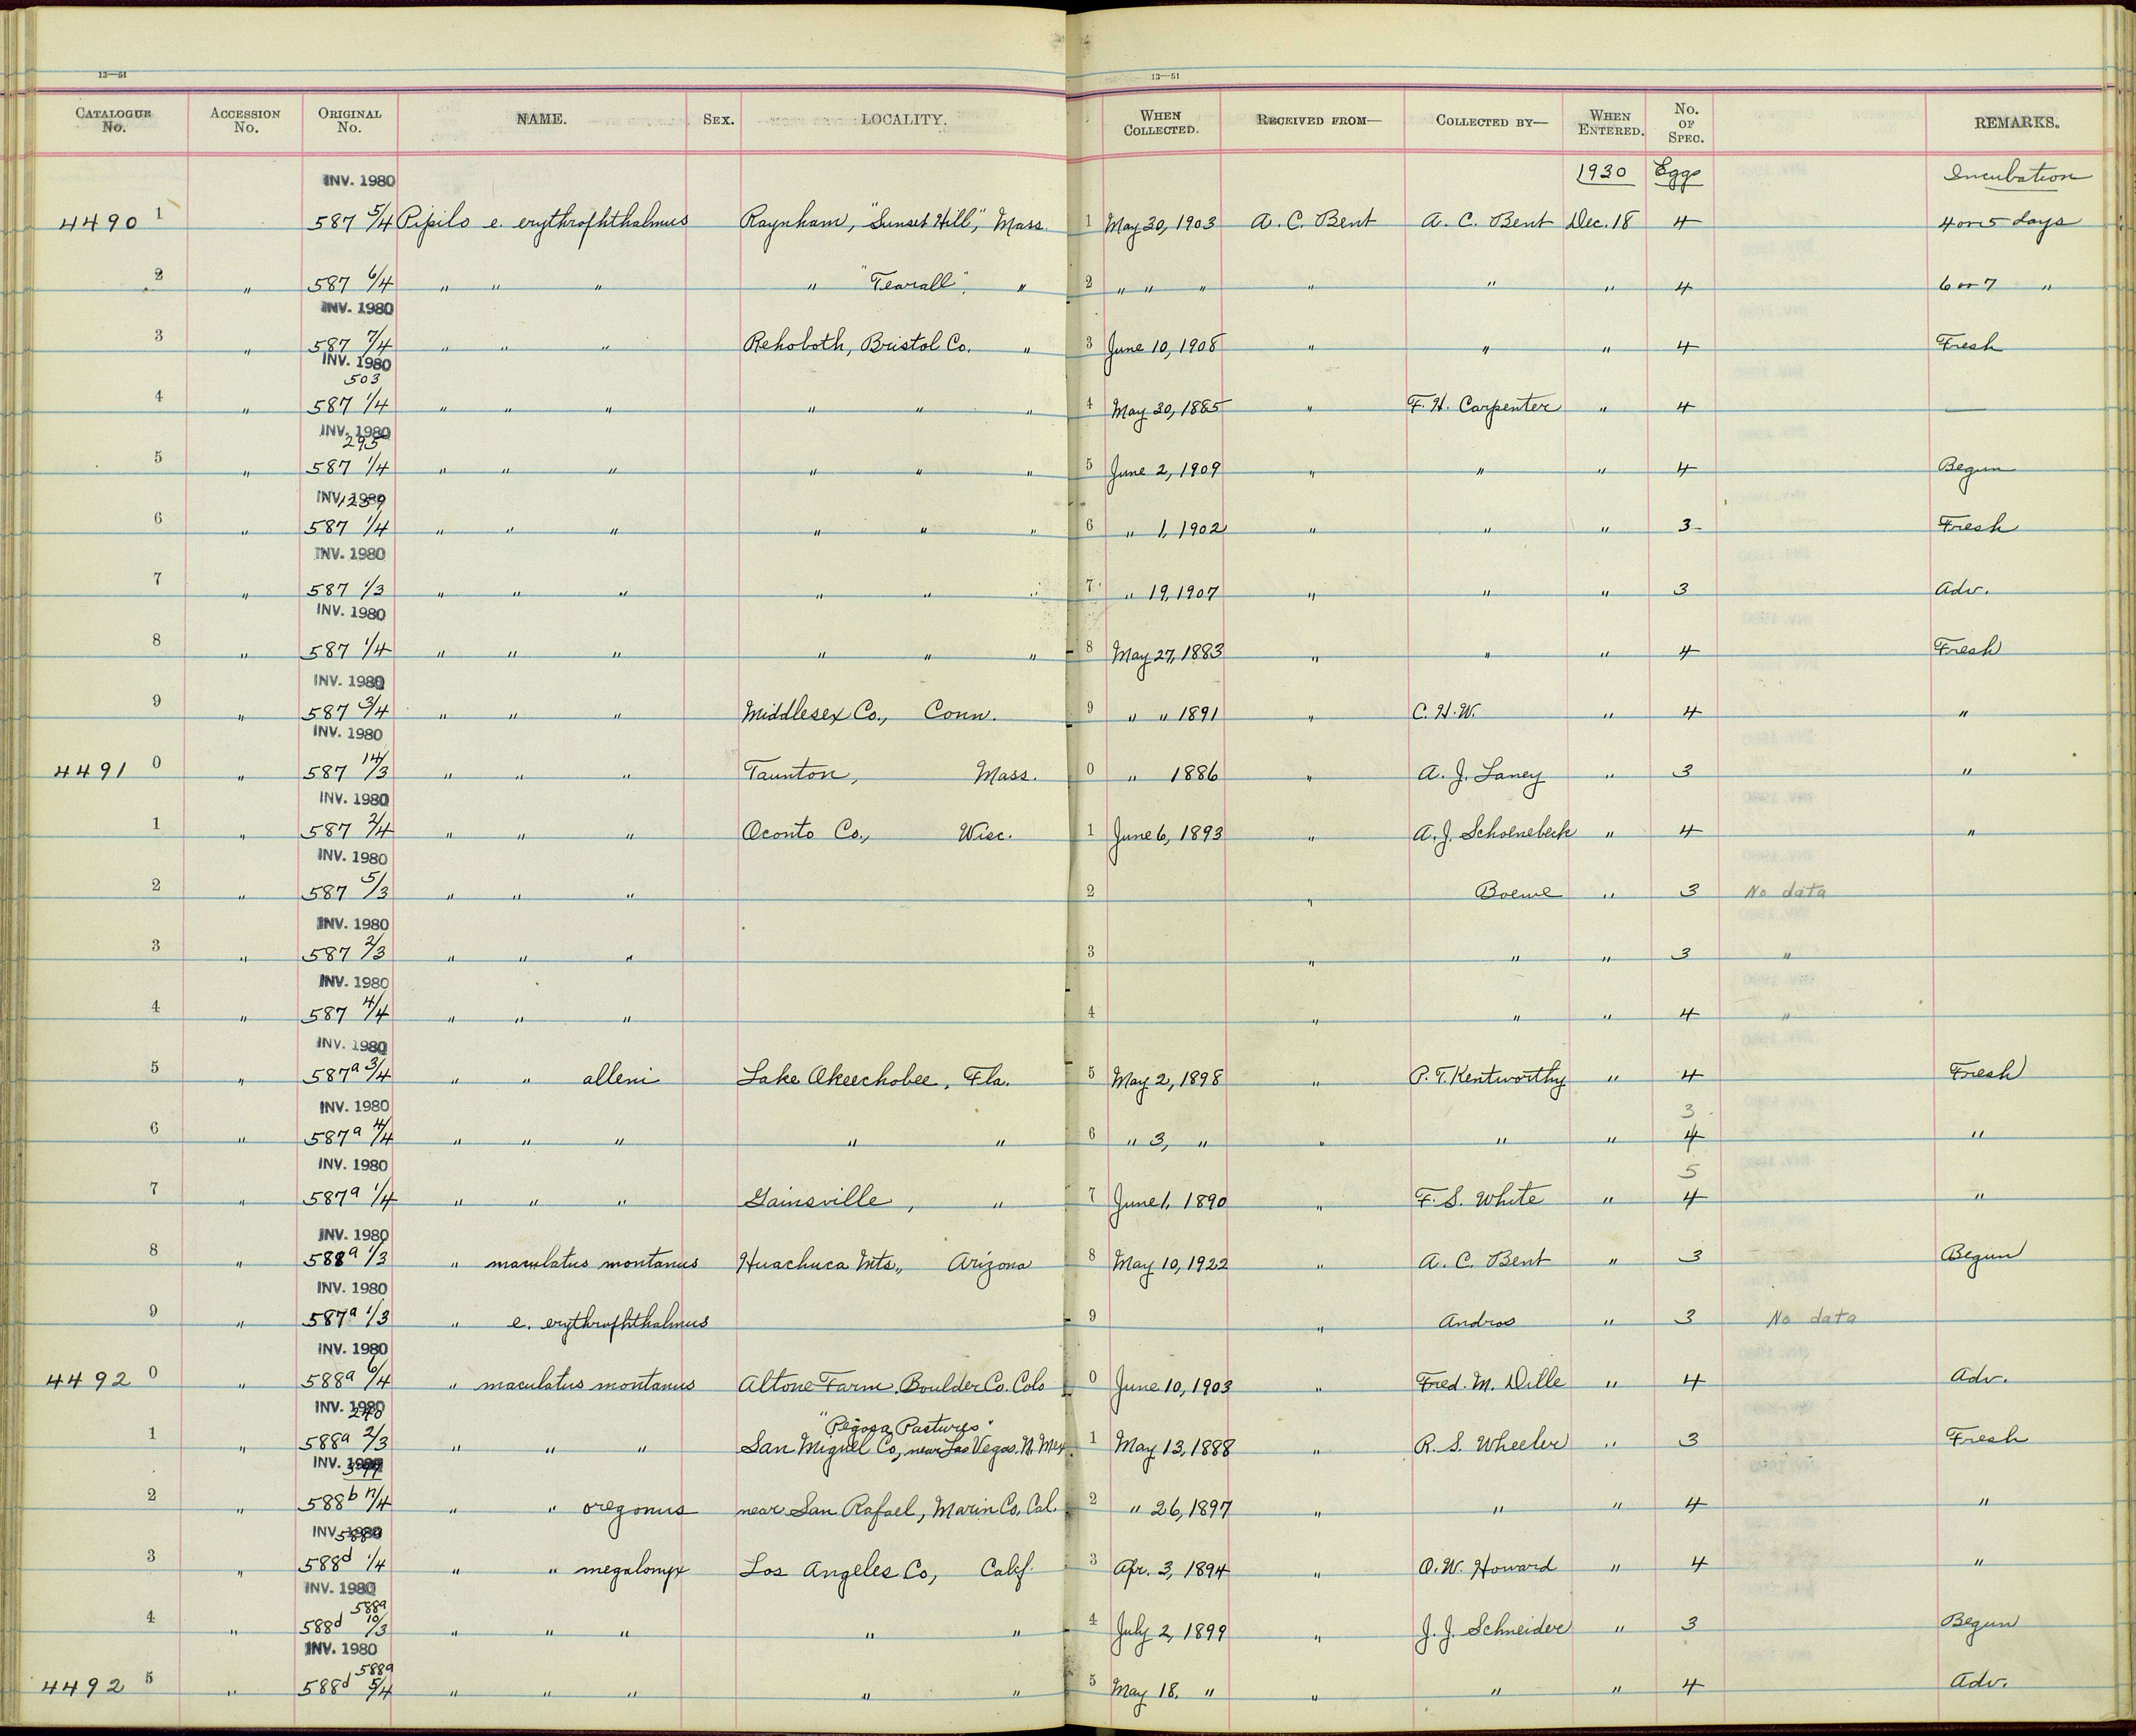 13—51 13—51
CATALOGUE No. ACCESSION No. ORIGINAL No. NAME. SEX. LOCALITY. WHEN COLLECTED. RECEIVED FROM— COLLECTED BY— WHEN ENTERED. No. OF SPEC. REMARKS.
INV. 1980 1930 Eggs Incubation
4490 1 587 5/4 Pipilo e. erythrophthalmus Raynham, "Sunset Hill", Mass. 1 May 30, 1903 A. C. Bent A. C. Bent Dec. 18 4 4 or 5 days
2 " 587 6/4 " " " " "Tearall", " 2 " " " " " " 4 6 or 7 "
INV. 1980
3 " 587 7/4 " " " Rehoboth, Bristol Co. " 3 June 10, 1908 " " " 4 Fresh
INV. 1980
503
4 " 587 1/4 " " " " " " 4 May 30, 1885 " F. H. Carpenter " 4 —
INV. 1980
295
5 " 587 1/4 " " " " " " 5 June 2, 1909 " " " 4 Begun
INV. 1980
6 " 587 1/4 " " " " " " 6 " 1, 1902 " " " 3 Fresh
INV. 1980
7 " 587 1/3 " " " " " " 7 " 19, 1907 " " " 3 Adv.
INV. 1980
8 " 587 1/4 " " " " " " 8 May 27, 1883 " " " 4 Fresh
INV. 1980
9 " 587 3/4 " " " Middlesex Co., Conn. 9 " " 1891 " C. H. W. " 4 "
INV. 1980
4491 0 " 587 14/3 " " " Taunton, Mass. 0 " 1886 " A. J. Laney " 3 "
INV. 1980
1 " 587 2/4 " " " Oconto Co., Wisc. 1 June 6, 1893 " A. J. Schoenebeck " 4 "
INV. 1980
2 " 587 5/3 " " " 2 " " 3 No data
INV. 1980
3 " 587 2/3 " " " 3 " " " 3 "
INV. 1980
4 " 587 4/4 " " " 4 " " " 4 "
INV. 1980
5 " 587a 3/4 " " alleni Lake Okeechobee, Fla. 5 May 2, 1898 " P. T. Kentworthy " 4 Fresh
INV. 1980 3
6 " 587a 4/4 " " " " " 6 " 3, " " " " 4 "
INV. 1980 5
7 " 587a 1/4 " " " Gainsville, " 7 June 1, 1890 " F. S. White " 4 "
INV. 1980
8 " 588a 1/3 " maculatus montanus Huachuca Mts., Arizona 8 May 10, 1922 " A. C. Bent " 3 Begun
INV. 1980
9 " 587a 1/3 " e. erythrophthalmus 9 " Andros " 3 No data
INV. 1980
4492 0 " 588a 6/4 " maculatus montanus Altone Farm, Boulder Co. Colo 0 June 10, 1903 " Fred. M. Dille " 4 Adv.
INV. 1980
240 Pastures"
1 " 588a 2/3 " " " San Miguel Co, near Las Vegas, N. Mex. 1 May 13, 1888 " R. S. Wheeler " 3 Fresh
INV. 1980
2 " 588b n/4 " " oregonus near San Rafael, Marin Co, Cal. 2 " 26, 1897 " " " 4 "
INV. 1980
3 " 588d 1/4 " " megalonyx Los Angeles Co, Calif. 3 Apr. 3, 1894 " O. W. Howard " 4 "
INV. 1980
588a
4 " 588d 10/3 " " " " " 4 July 2, 1899 " J. J. Schneider " 3 Begun
INV. 1980
588a
4492 5 " 588d 5/4 " " " " " 5 May 18, " " " " 4 Adv.